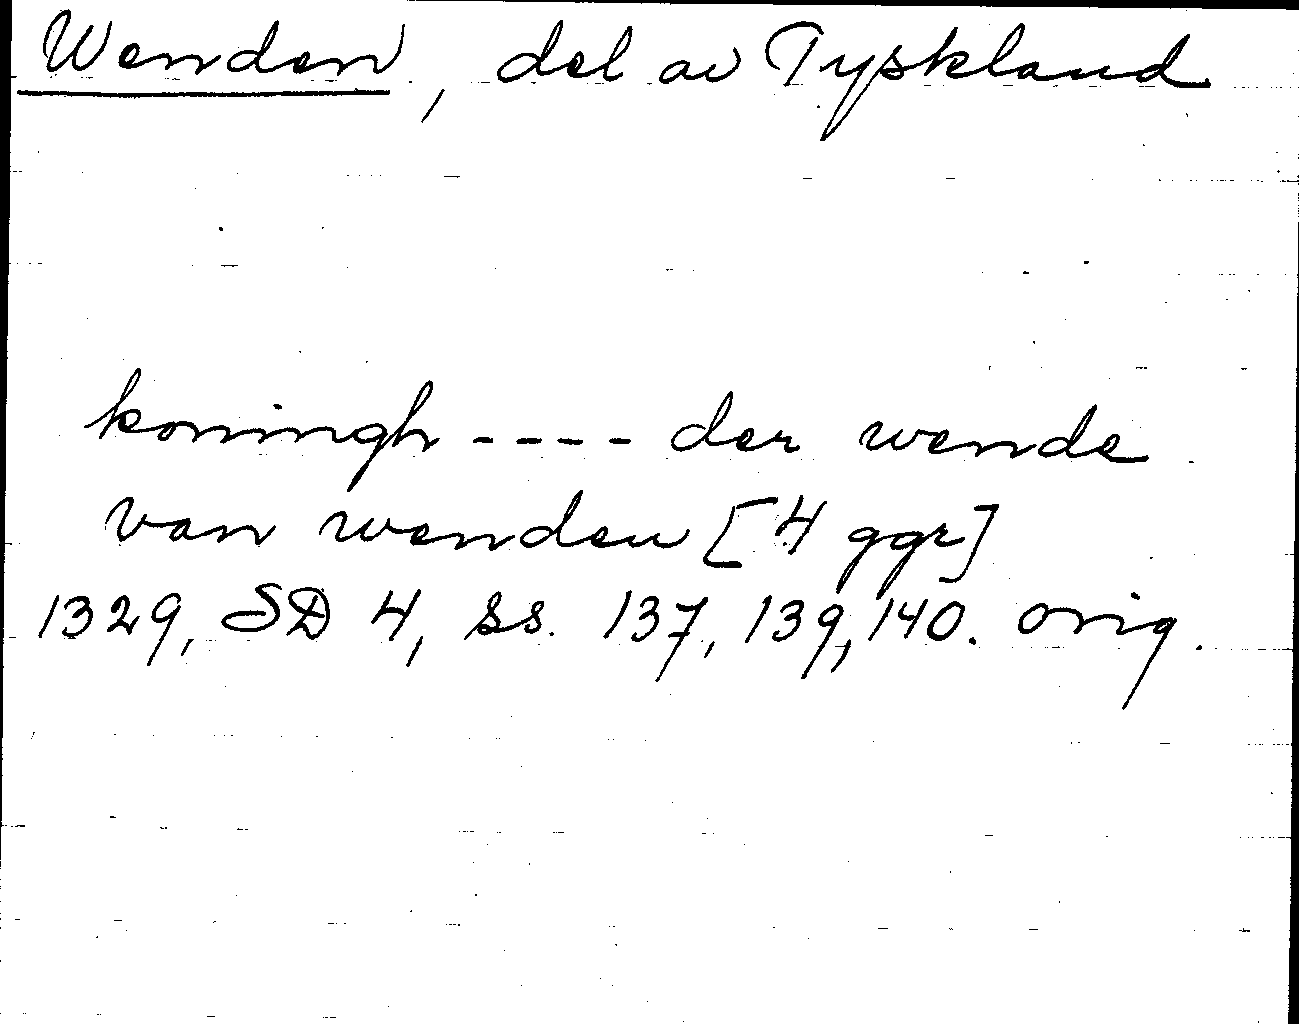 Wenden, del av Tyskland
koningh ---- der wende
van wenden [4 ggr]
1329, SD 4, ss. 137, 139, 140. orig.